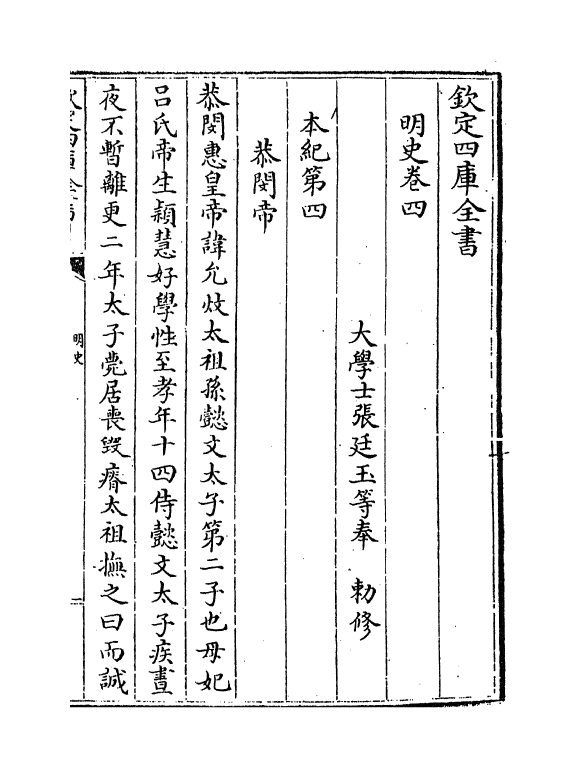 欽定四庫全書
明史卷四
大學士張廷玉等奉 勅修
本紀第四
恭閔帝
恭閔惠皇帝諱允炆太祖孫懿文太子第二子也母妃
呂氏帝生穎慧好學性至孝年十四侍懿文太子疾晝
夜不暫離更二年太子薨居喪毀瘠太祖撫之曰而誠
明史